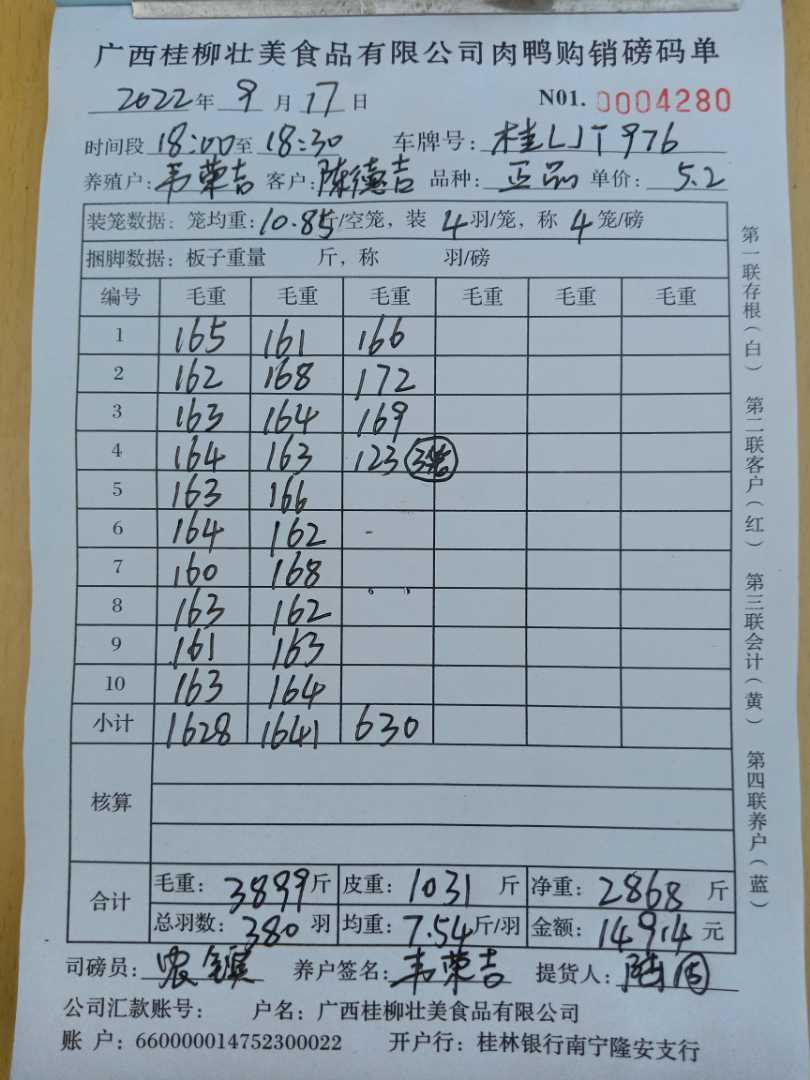 广西桂柳壮美食品有限公司肉鸭购销磅码单
2022年 9月17日 N01. 0004280
时间段 18:00至 18:30 车牌号: 桂LJT976
养殖户: 韦荣吉 客户: 陈德吉 品种: 正品 单价: 5.2
装笼数据: 笼均重: 10.85斤/空笼, 装 4羽/笼, 称 4笼/磅
捆脚数据: 板子重量 斤, 称 羽/磅
编号 毛重 毛重 毛重 毛重 毛重 毛重
1 165 161 166
2 162 168 172
3 163 164 169
4 164 163 123 3笼
5 163 166
6 164 162 -
7 160 168
8 163 162
9 161 163
10 163 164
小计 1628 1641 630
核算
合计 毛重: 3899斤 皮重: 1031斤 净重: 2868斤
总羽数: 380羽 均重: 7.54斤/羽 金额: 14914元
司磅员: 养户签名: 韦荣吉 提货人:
公司汇款账号: 户名: 广西桂柳壮美食品有限公司
账 户: 660000014752300022 开户行: 桂林银行南宁隆安支行
第一联存根(白) 第二联客户(红) 第三联会计(黄) 第四联养户(蓝)